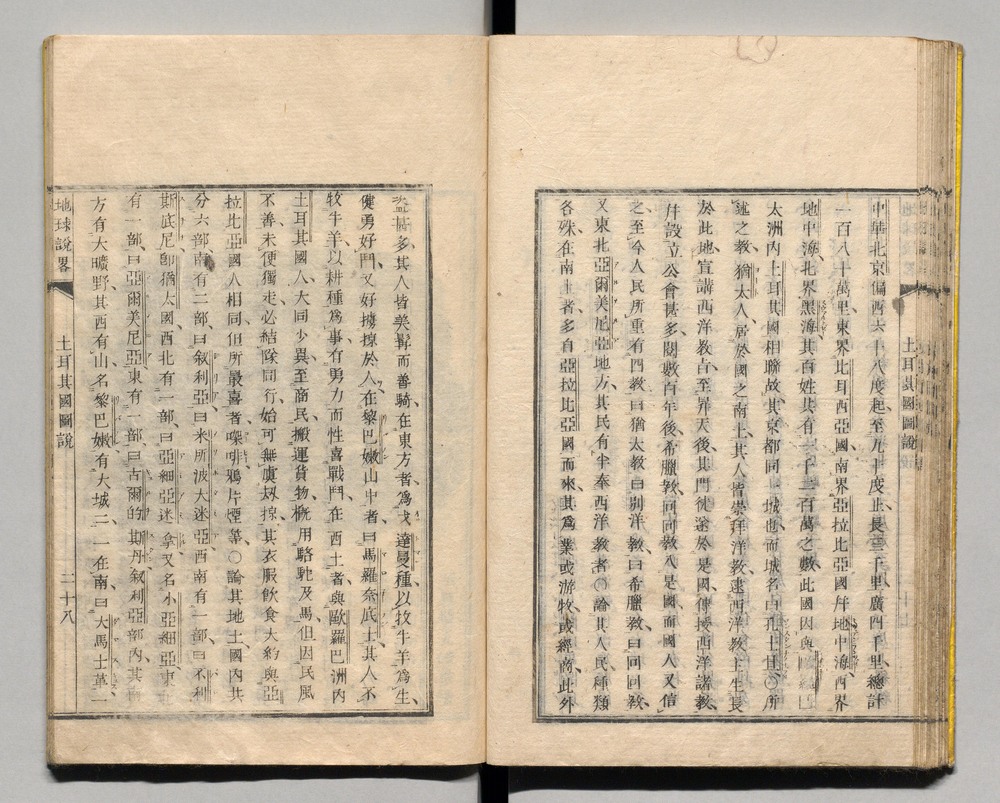 中華北京偏西六十八度起至九十度止長三千里廣四千里總計
一百八十萬里東界比耳西亞國南界亞拉比亞國幷地中海西界
地中海北界黑海其百姓共有一千二百萬之數此國因與
太洲內土耳其國相聯故其京都同一城也而城名古孔士旦〇所
述之教猶太人居於國之南土其人皆崇拜洋教逮西洋教主生長
於此地宣講西洋教旨至昇天後其門徒遂於是國傳授西洋諸教
幷設立公會甚多閱數百年後希臘教回回教入是國而國人又信
之至今人民所重有四教曰猶太教曰別洋教曰希臘教曰回回教
又東北亞爾美尼亞地方其民有半奉西洋教者〇論其人民種類
各殊在南土者多自亞拉比亞國而來其爲業或游牧或經商此外
土耳其國圖說
盜甚多其人皆美髯而善騎在東方者爲戈達曼種以牧牛羊爲生
健勇好鬥又好擄掠於人在黎巴嫩山中者曰馬羅奈底士其人不
牧牛羊以耕種爲事有勇力而性喜戰鬥在西土者與歐羅巴洲內
土耳其國人大同少異至商民搬運貨物槪用駱駝及馬但因民風
不善未便獨走必結隊同行始可無虞刼掠其衣服飲食大約與亞
拉比亞國人相同但所最喜者㗎啡鴉片煙等〇論其地土國內共
分六部南有二部曰叙利亞曰米所波大迷亞西南有一部曰不利
斯底尼卽猶太國西北有一部曰亞細亞迷拿又名小亞細亞東北
有一部曰亞爾美尼亞東有一部曰古爾的斯丹叙利亞部內其
方有大曠野其西有山名黎巴嫩有大城二一在南曰大馬士革一
地球說畧
土耳其國圖說
二十八